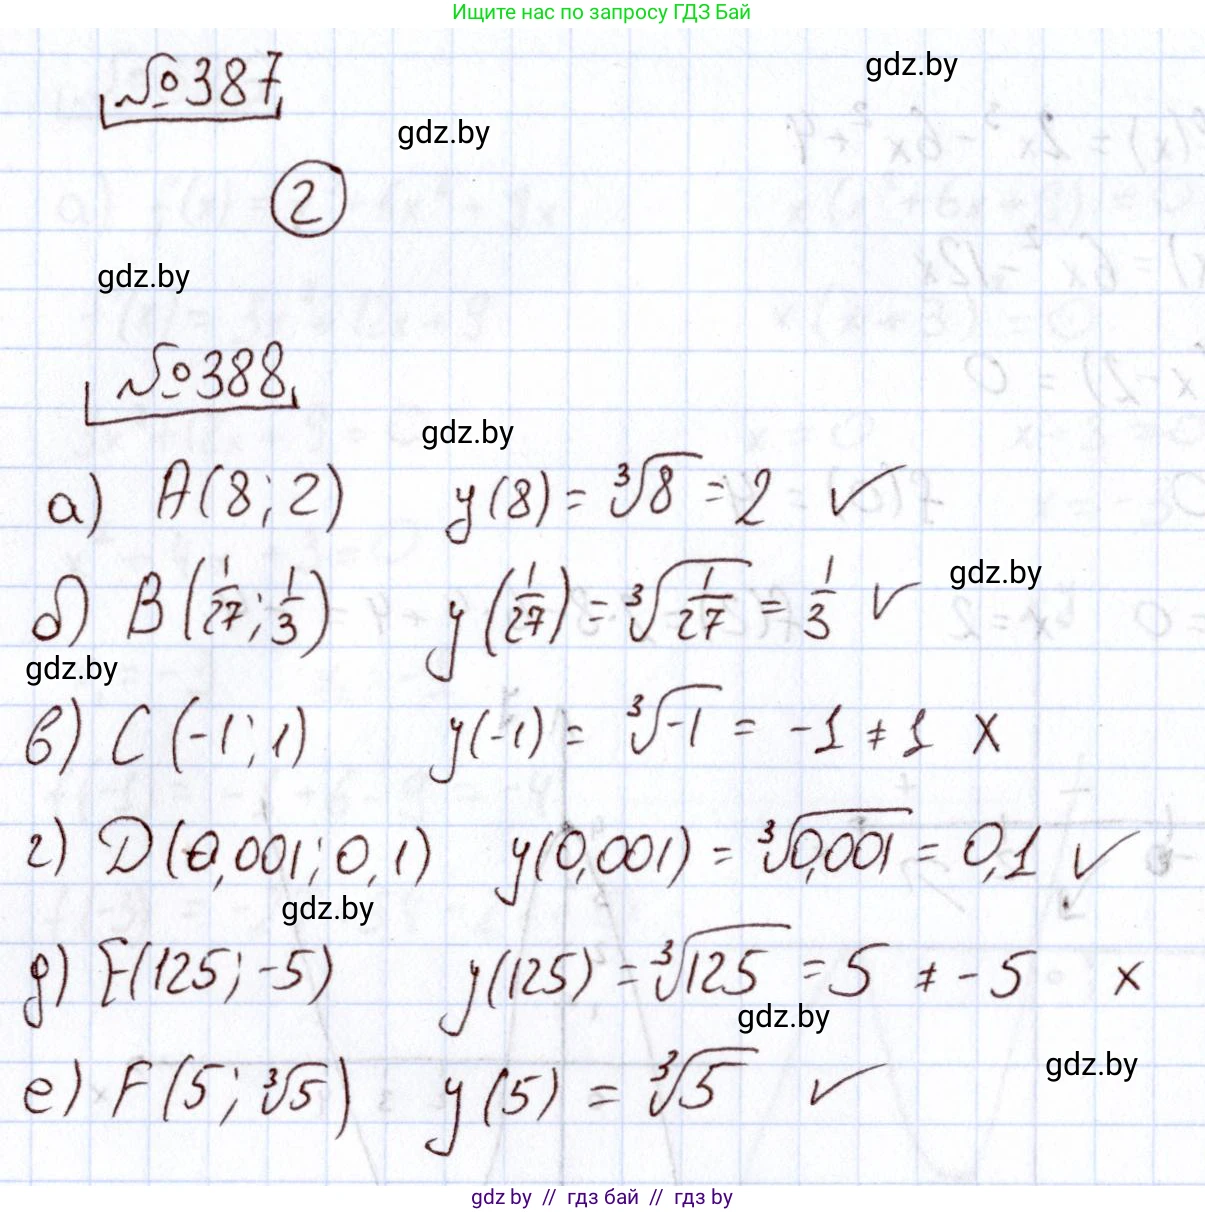 Ищите нас по запросу ГДЗ Бай
№387
gdz.by
gdz.by
2
gdz.by
№388
gdz.by
а) A(8; 2) y(8) = ∛8 = 2 ✓
б) B(1/27; 1/3) y(1/27) = ∛(1/27) = 1/3 ✓
gdz.by
gdz.by
в) C(-1; 1) y(-1) = ∛-1 = -1 ≠ 1 x
г) D(0,001; 0,1) y(0,001) = ∛0,001 = 0,1 ✓
gdz.by
д) E(125; -5) y(125) = ∛125 = 5 ≠ -5 x
gdz.by
gdz.by
е) F(5; ∛5) y(5) = ∛5 ✓
gdz by // гдз бай // гдз by